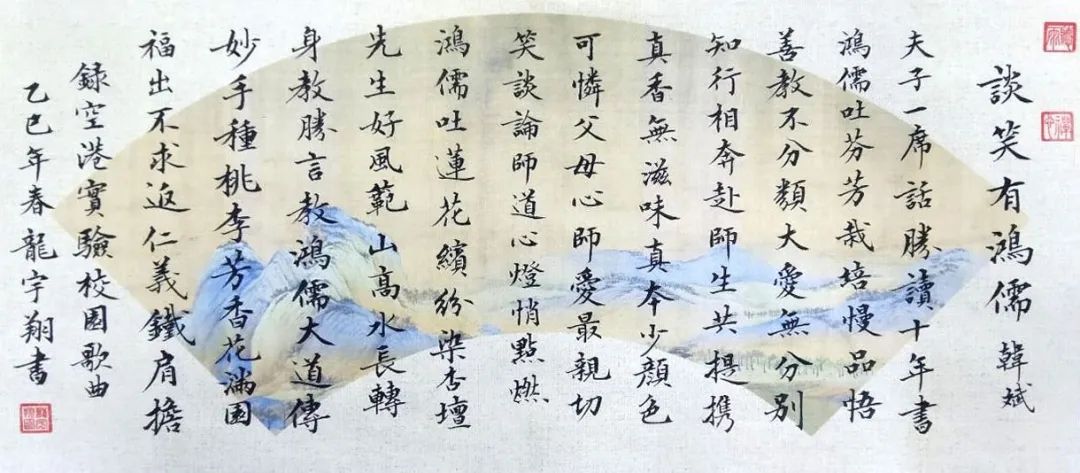 談笑有鴻儒 韓斌
夫子一席話勝讀十年書
鴻儒吐芬芳栽培慢品悟
善教不分類大愛無分别
知行相奔赴師生共提携
真香無滋味真本少顔色
可憐父母心師愛最親切
笑談論師道心燈悄點燃
鴻儒吐蓮花繽紛染杏壇
先生好風範山高水長轉
身教勝言教鴻儒大道傳
妙手種桃李芳香花滿園
福出不求返仁義鐵肩擔
録空港實驗校園歌曲
乙巳年春龍宇翔書